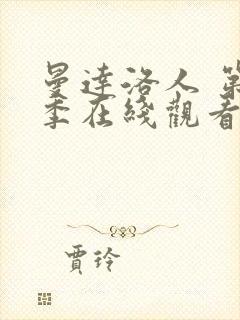 曼達洛人 第
季在綫觀看
賈玲